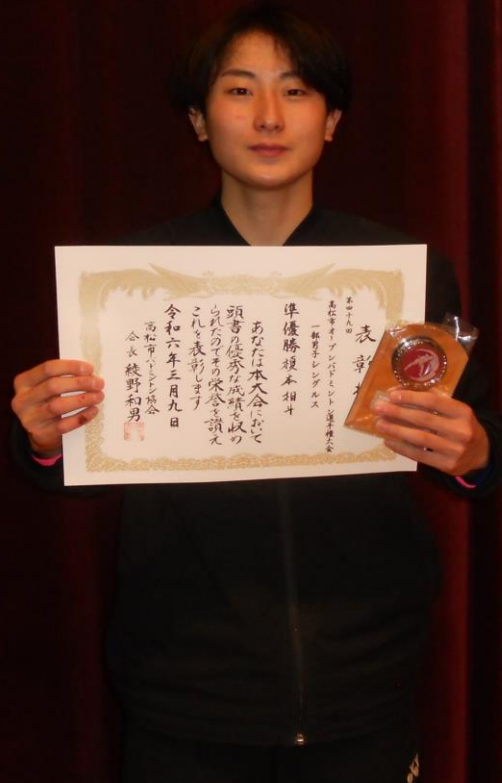 表彰
第四十九回
高松市オープンバドミントン選手権大会
一部男子シングルス
準優勝 榎本相斗
あなたは本大会において
頭書の優秀な成績を収め
られたのでその栄誉を讃え
これを表彰します
令和六年三月九日
高松市バドミントン協会
会長 綾野和男